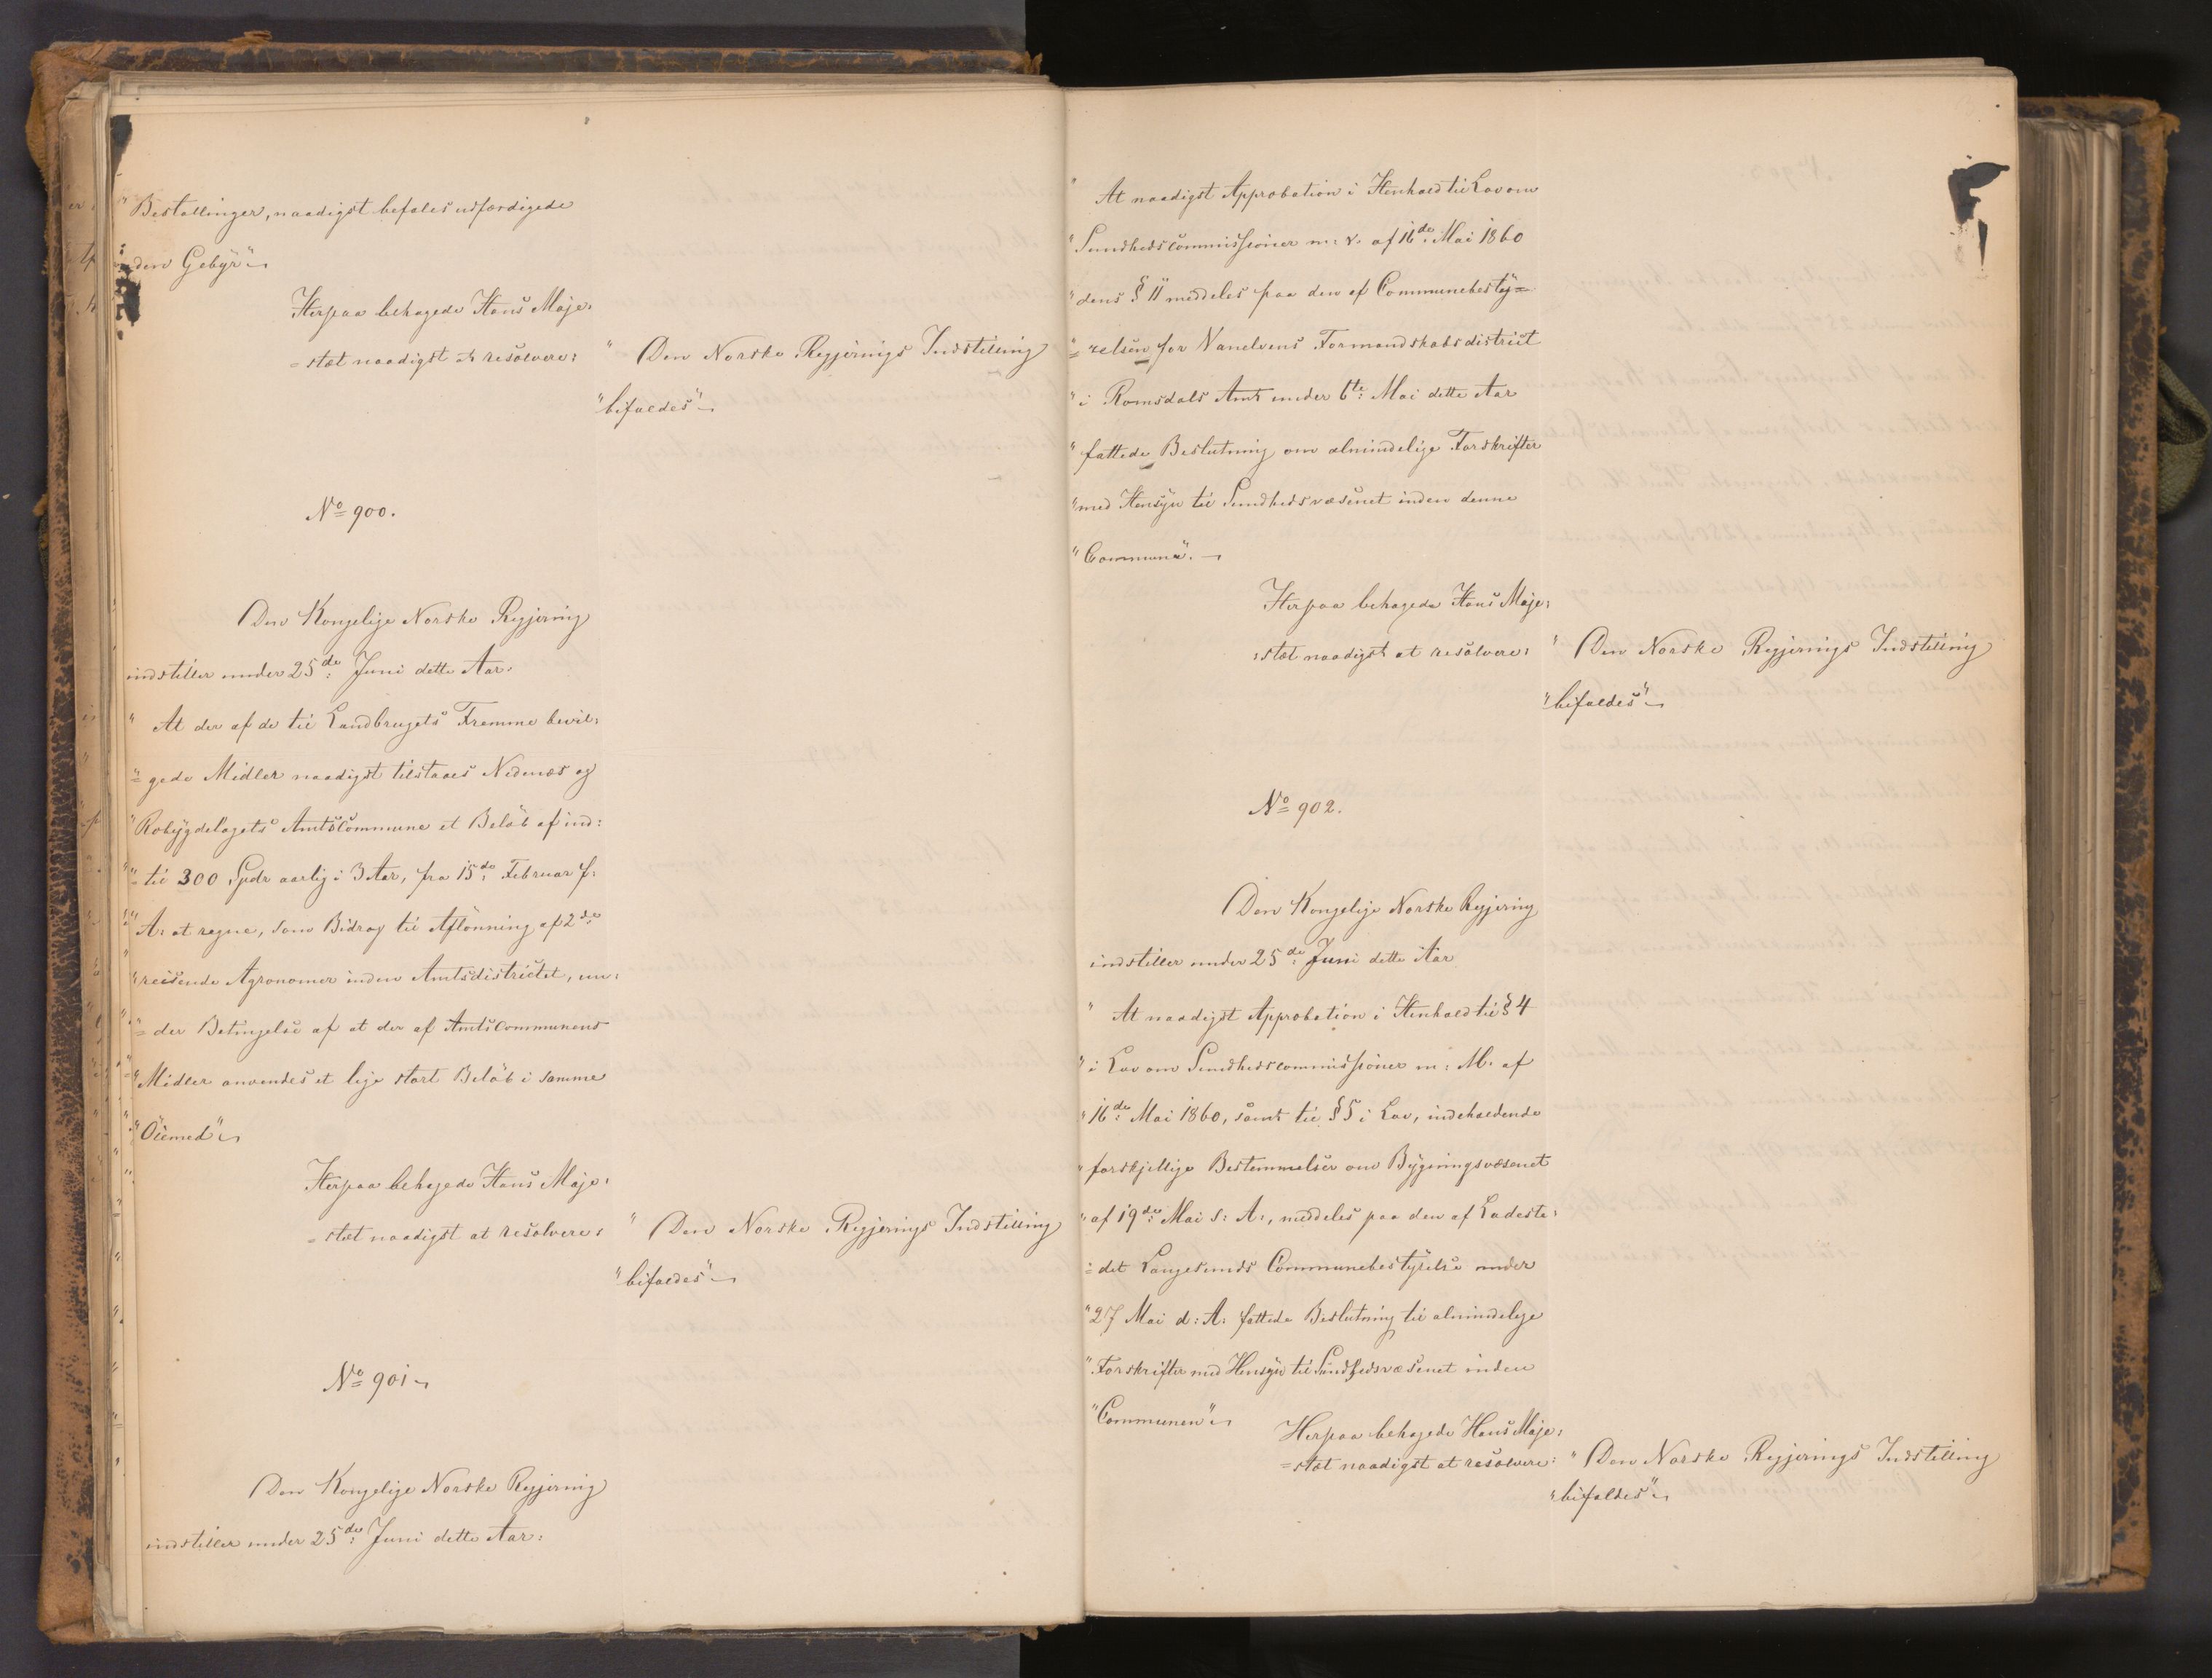 "Bestallinger, naadigst befales udfærdigede
uden Gebyr"
Herpaa behagede Hans Maje:
=stæt naadigst at resolvere:
" Den Norske Regjerings Indstilling
"bifaldes"
No 900.
Den Kongelige Norske Regjering
indstiller under 25de: Juni dette Aar:
" At der af de til Landbrugets Fremme bevil:
"=gede Midler naadigst tilstaaes Nedenæs og
"Robygdelagets Amtscommune et Beløb af ind:
"=til 300 Spdr aarlig i 3 Aar, fra 15de: Februar f:
"A: at regne, som Bidrag til Aflönning af 2de:
"reisende Agronomer inden Amtsdistrictet, un:
"=der Betingelse af at der af Amtscommunens
"Midler anvendes et lige stort Beløb i samme
"Öiemed"
Herpaa behagede Hans Maje:
=stæt naadigst at resolvere:
" Den Norske Regjerings Indstilling
"bifaldes"
No 901
Den Kongelige Norske Regjering
indstiller under 25de: Juni dette Aar:
" At naadigst Approbation i Henhold til Lov om
"Sundhedscommissioner m: v. af 16de: Mai 1860
"dens § 11 meddeles paa den af Communebesty=
"=relsen for Vanelvens Formandskabsdistrict
"i Romsdals Amt under 6te: Mai dette Aar
"fattede Beslutning om almindelige Forskrifter
"med Hensyn til Sundhedsvæsenet inden denne
"Commune".
Herpaa behagede Hans Maje:
:stæt naadigst at resolvere:
" Den Norske Regjerings Indstilling
"bifaldes"
No 902.
Den Kongelige Norske Regjering
indstiller under 25de: Juni dette Aar
" At naadigst Approbation i Henhold til § 4
"i Lov om Sundhedscommissioner m: M. af
"16de: Mai 1860, samt til § 5 i Lov, indeholdende
"forskjellige Bestemmelser om Bygningsvæsenet
"af 19de: Mai s: A:, meddeles paa den af Ladeste:
:det Langesunds Communebestyrelse under
"27 Mai d: A: fattede Beslutning til almindelige
"Forskrifter med Hensyn til Sundhedsvæsenet inden
"Communen"
Herpaa behagede Hans Maje:
=stæt naadigst at resolvere:
" Den Norske Regjerings Indstilling
"bifaldes"